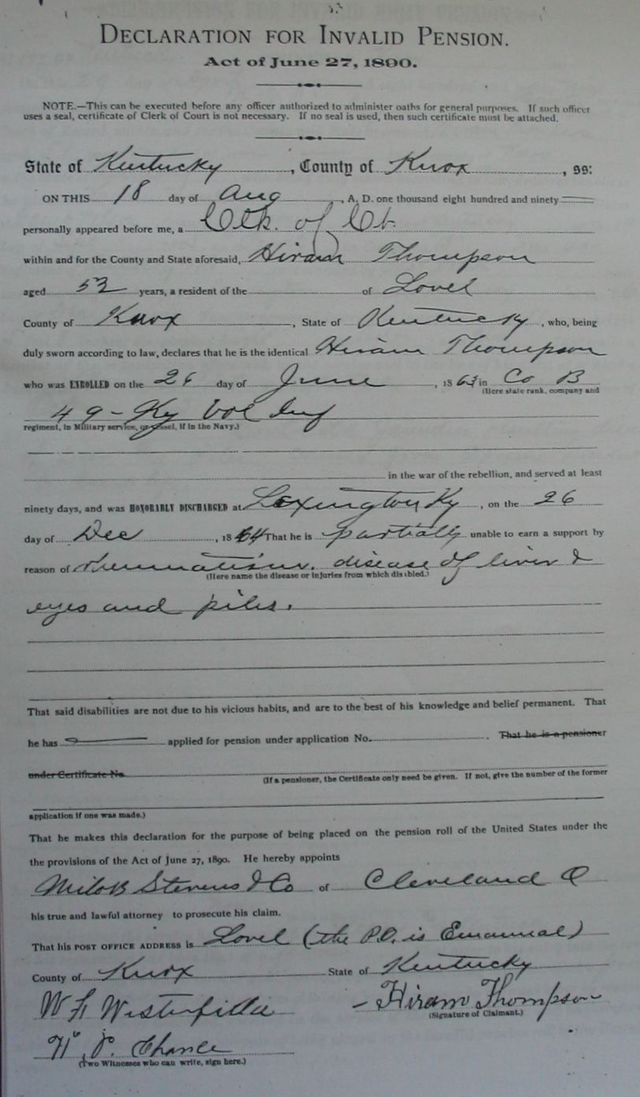 DECLARATION FOR INVALID PENSION.
Act of June 27, 1890.
NOTE.—This can be executed before any officer authorized to administer oaths for general purposes. If such officer
uses a seal, certificate of Clerk of Court is not necessary. If no seal is used, then such certificate must be attached.
State of Kentucky, County of Knox, ss:
ON THIS 18 day of Aug, A. D. one thousand eight hundred and ninety
personally appeared before me, a Clk. of Ct.
within and for the County and State aforesaid, Hiram Thompson
aged 52 years, a resident of the of Lovel
County of Knox, State of Kentucky, who, being
duly sworn according to law, declares that he is the identical Hiram Thompson
who was ENROLLED on the 26 day of June, 1863 in Co B
(Here state rank, company and
49 - Ky Vol Inf
regiment, in Military service, or vessel, if in the Navy.)
in the war of the rebellion, and served at least
ninety days, and was HONORABLY DISCHARGED at Lexington Ky, on the 26
day of Dec, 1864 That he is partially unable to earn a support by
reason of rheumatism. disease of liver &
(Here name the disease or injuries from which disabled.)
eyes and piles.
That said disabilities are not due to his vicious habits, and are to the best of his knowledge and belief permanent. That
he has applied for pension under application No. That he is a pensioner
under Certificate No. (If a pensioner, the Certificate only need be given. If not, give the number of the former
application if one was made.)
That he makes this declaration for the purpose of being placed on the pension roll of the United States under the
the provisions of the Act of June 27, 1890. He hereby appoints
Milo B Stevens & Co of Cleveland O
his true and lawful attorney to prosecute his claim.
That his POST OFFICE ADDRESS is Lovel (the P.O. is Emanuel)
County of Knox State of Kentucky
Hiram Thompson
(Signature of Claimant.)
Chance
(Two Witnesses who can write, sign here.)